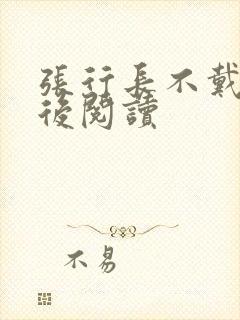 張行長不戴
後閱讀
不易